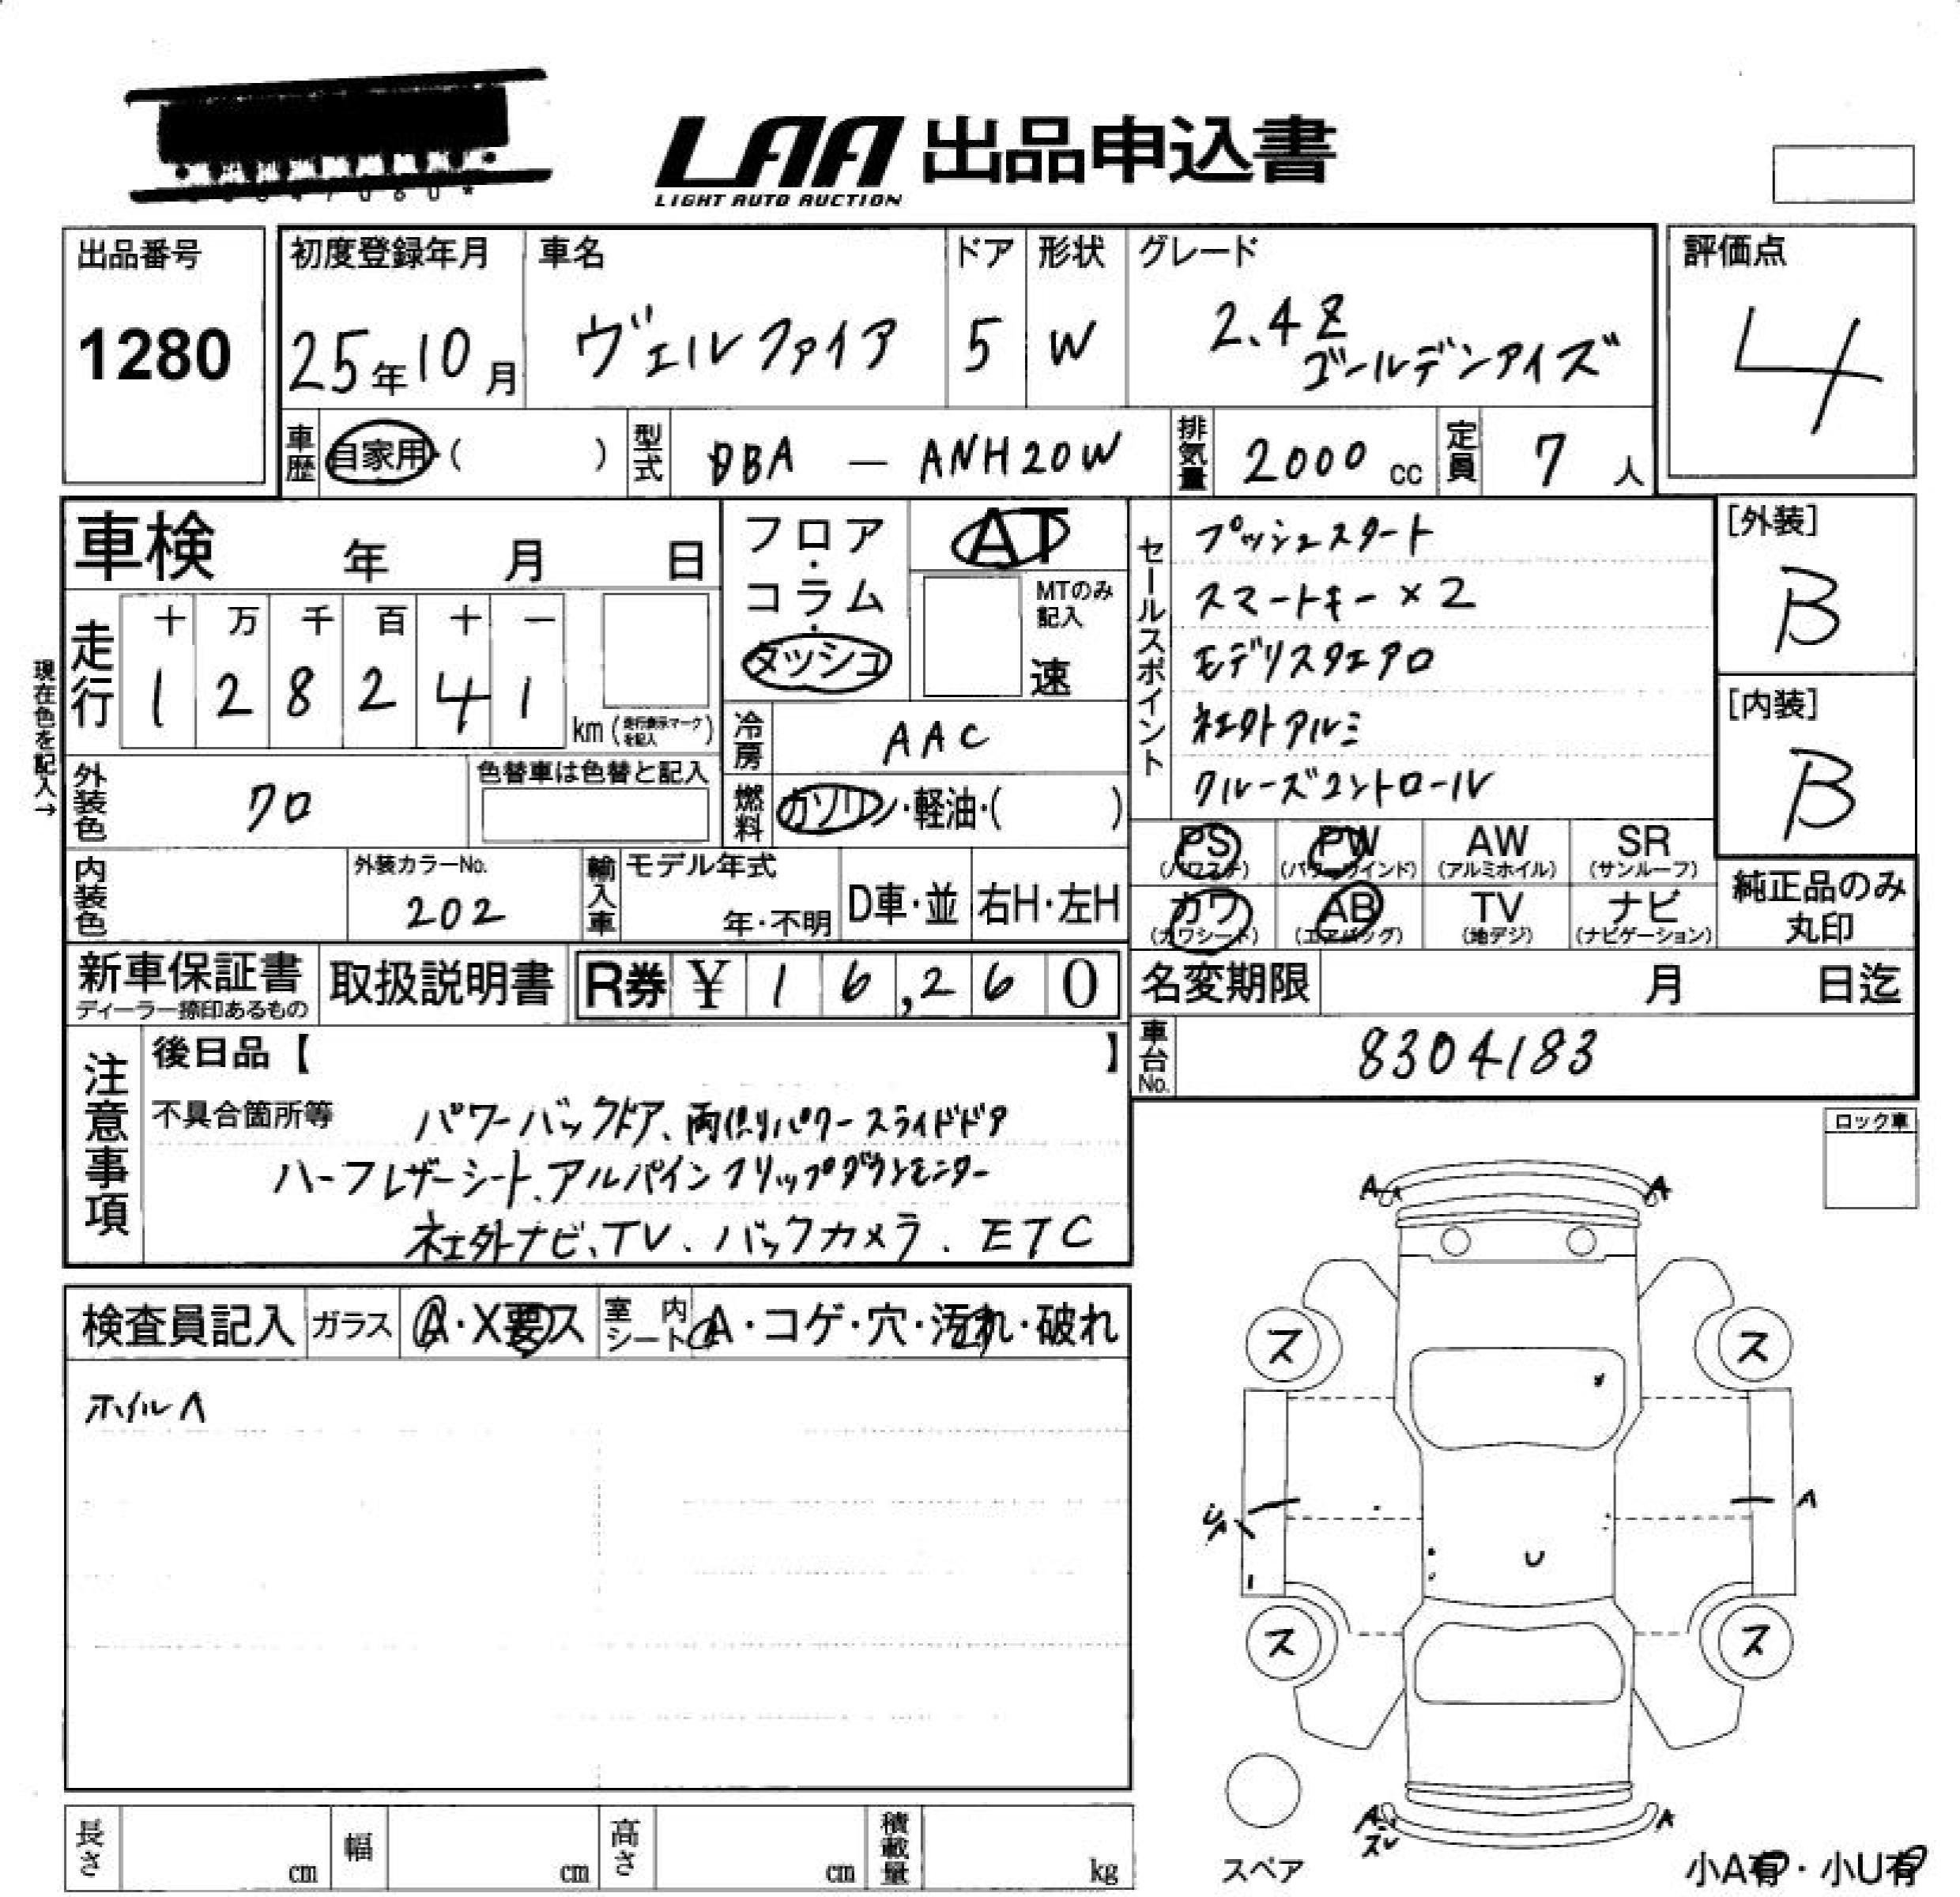 LAA 出品申込書
LIGHT AUTO AUCTION
出品番号
1280
初度登録年月
25年10月
車名
ヴェルファイア
ドア
5
形状
W
グレード
2.4Z
ゴールデンアイズ
評価点
4
車歴
自家用・( )
型式
DBA － ANH20W
排気量
2000 cc
定員
7 人
車検 年 月 日
走行
十 万 千 百 十 一
1 2 8 2 4 1
km(走行表示マークを記入)
現在色を記入→
フロア・コラム・ダッシュ
AT
MTのみ記入
速
冷房
AAC
燃料
ガソリン・軽油・( )
外装色
クロ
色替車は色替と記入
内装色
外装カラーNo.
202
輸入車
モデル年式
年・不明
D車・並
右H・左H
セールスポイント
プッシュスタート
スマートキー×2
モデリスタエアロ
社外アルミ
クルーズコントロール
[外装]
B
[内装]
B
PS
(パワステ)
PW
(パワーウインド)
AW
(アルミホイル)
SR
(サンルーフ)
カワ
(カワシート)
AB
(エアバッグ)
TV
(地デジ)
ナビ
(ナビゲーション)
純正品のみ
丸印
新車保証書
ディーラー捺印あるもの
取扱説明書
R券 ¥ 16,260
名変期限 月 日迄
車台No.
8304183
注意事項
後日品【 】
不具合箇所等
パワーバックドア、両側パワースライドドア
ハーフレザーシート、アルパインフリップダウンモニター
社外ナビ、TV、バックカメラ、ETC
ロック車
検査員記入
ガラス
A・X要ス
室内シート
A・コゲ・穴・汚れ・破れ
ホイルA
A
A
ス
ス
A
U
ス
ス
A
A
スペア
小A有・小U有
長さ cm
幅 cm
高さ cm
積載量 kg